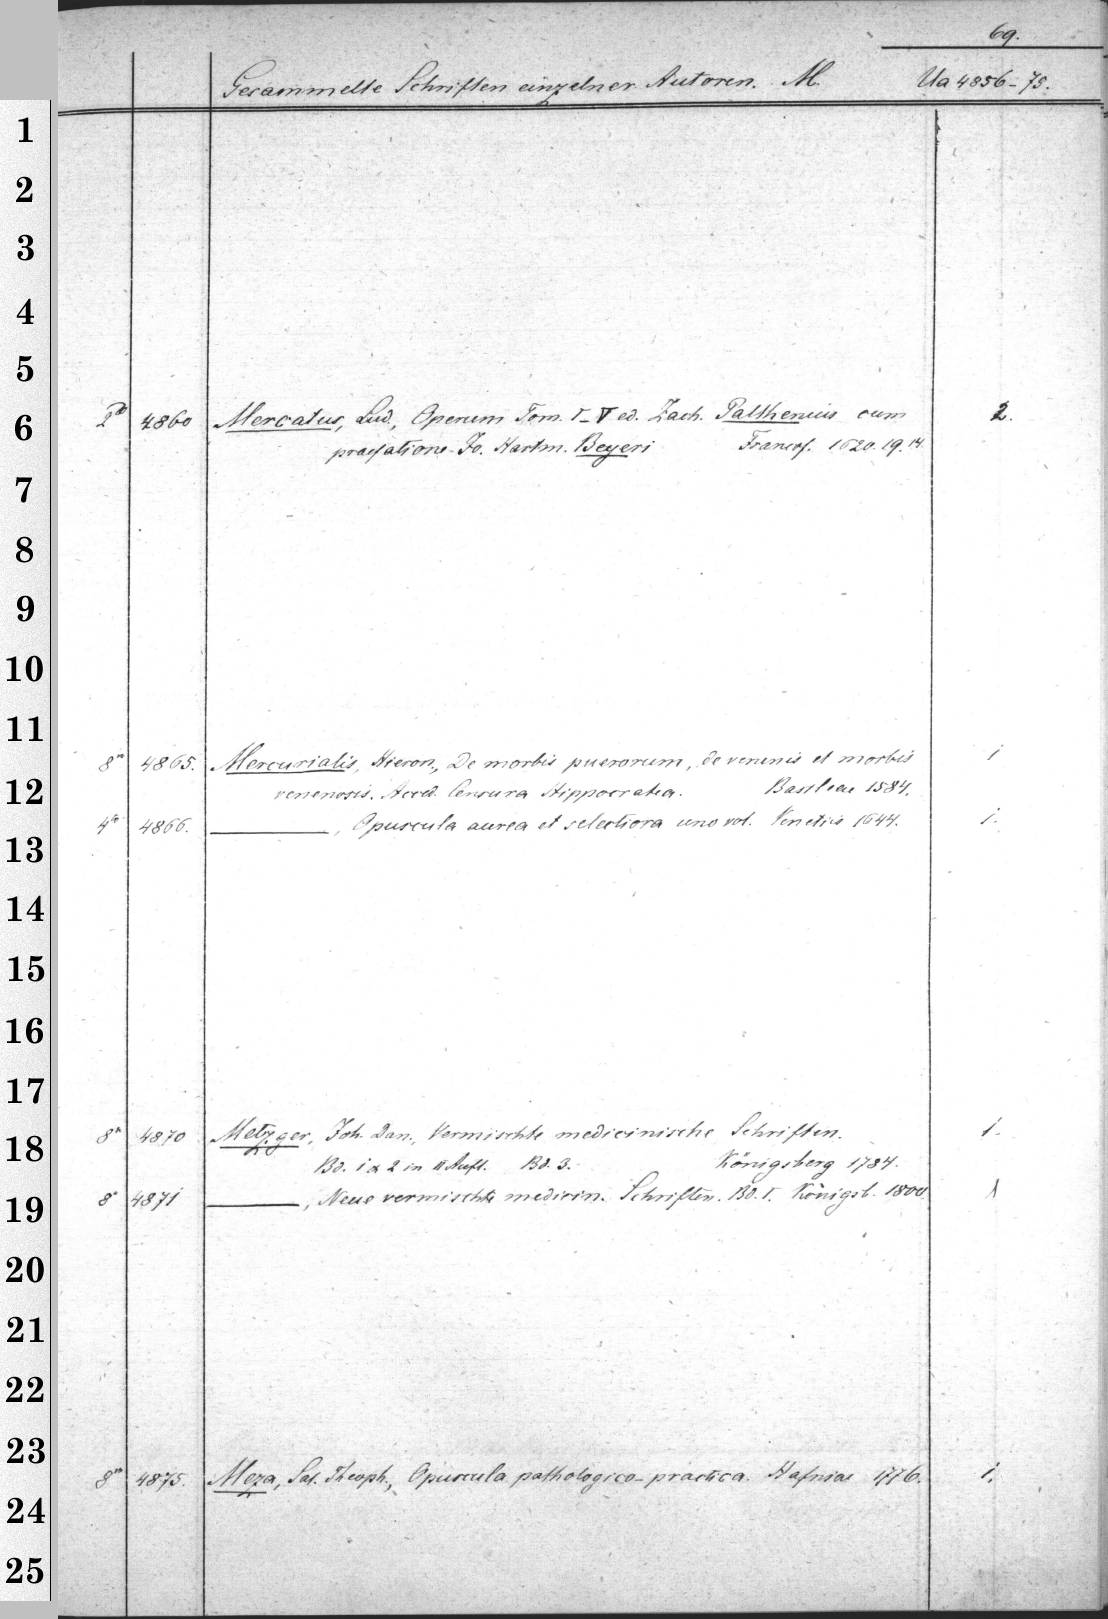 69.
Gesammelte Schriften einzelner Autoren. M. Ua 4856-75.
1
2
3
4
5
6
2° 4860 Mercatus, Lud., Operum Tom. I-V ed. Zach. Palthenius cum 2.
praefatione Jo. Hartm. Beyeri Francof. 1620. 19. 14
7
8
9
10
11
8° 4865. Mercurialis, Hieron., De morbis puerorum, de venenis et morbis 1
12
venenosis. Acced. Censura Hippocratea. Basileae 1584.
4° 4866. ———, Opuscula aurea et selectiora uno vol. Venetiis 1644. 1.
13
14
15
16
17
8° 4870 Metzger, Joh. Dan., Vermischte medicinische Schriften. 1.
18
Bd. 1 & 2 in II Aufl. Bd. 3. Königsberg 1784.
8° 4871 ———, Neue vermischte medicin. Schriften. Bd. I. Königsb. 1800 1
19
20
21
22
23
8° 4875. Meza, Sal. Theoph., Opuscula pathologico-practica. Hafniae 1776. 1.
24
25